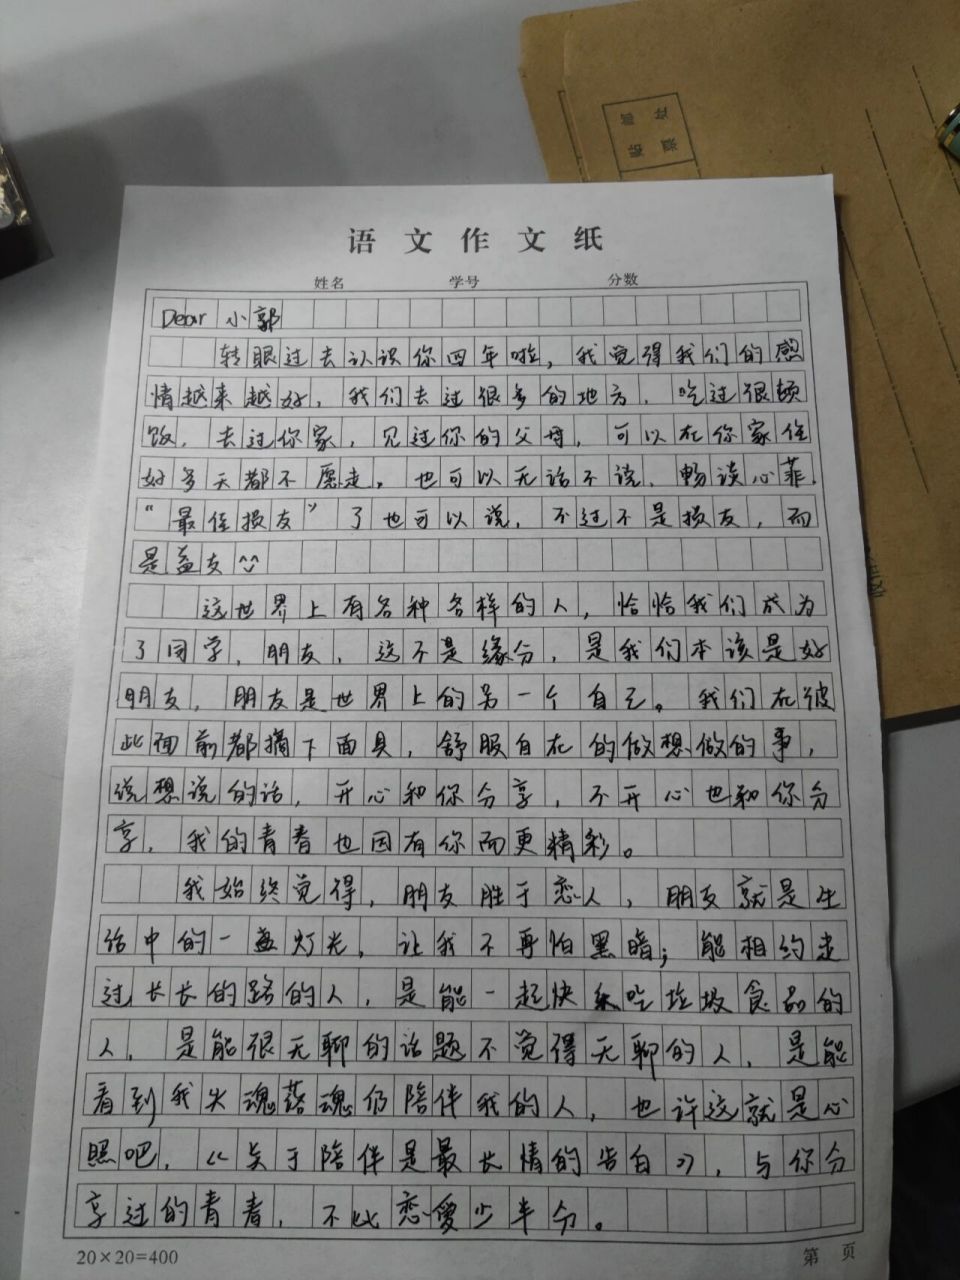 语文作文纸
姓名 学号 分数
Dear 小郭
转眼过去认识你四年啦，我觉得我们的感
情越来越好，我们去过很多的地方，吃过很顿
饭，去过你家，见过你的父母，可以在你家住
好多天都不愿走，也可以无话不说，畅谈心菲，
“最佳损友”了也可以说，不过不是损友，而
是益友^^
这世界上有各种各样的人，恰恰我们成为
了同学，朋友，这不是缘分，是我们本该是好
朋友，朋友是世界上的另一个自己。我们在彼
此面前都摘下面具，舒服自在的做想做的事，
说想说的话，开心和你分享，不开心也和你分
享，我的青春也因有你而更精彩。
我始终觉得，朋友胜于恋人，朋友就是生
活中的一盏灯光，让我不再怕黑暗；能相约走
过长长的路的人，是能一起快乐吃垃圾食品的
人，是能很无聊的话题不觉得无聊的人，是能
看到我失魂落魂仍陪伴我的人，也许这就是心
照吧，《关于陪伴是最长情的告白》，与你分
享过的青春，不比恋爱少半分。
20×20=400
第 页